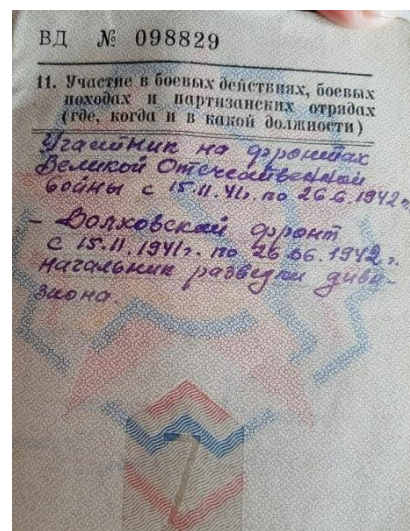 ВД № 098829
11. Участие в боевых действиях, боевых
походах и партизанских отрядах
(где, когда и в какой должности)
Участник на фронтах
Великой Отечественной
войны с 15.11.41г. по 26.6.1942г.
- Волховский фронт
с 15.11.1941г. по 26.06.1942г.
начальник разведки диви-
зиона.
7